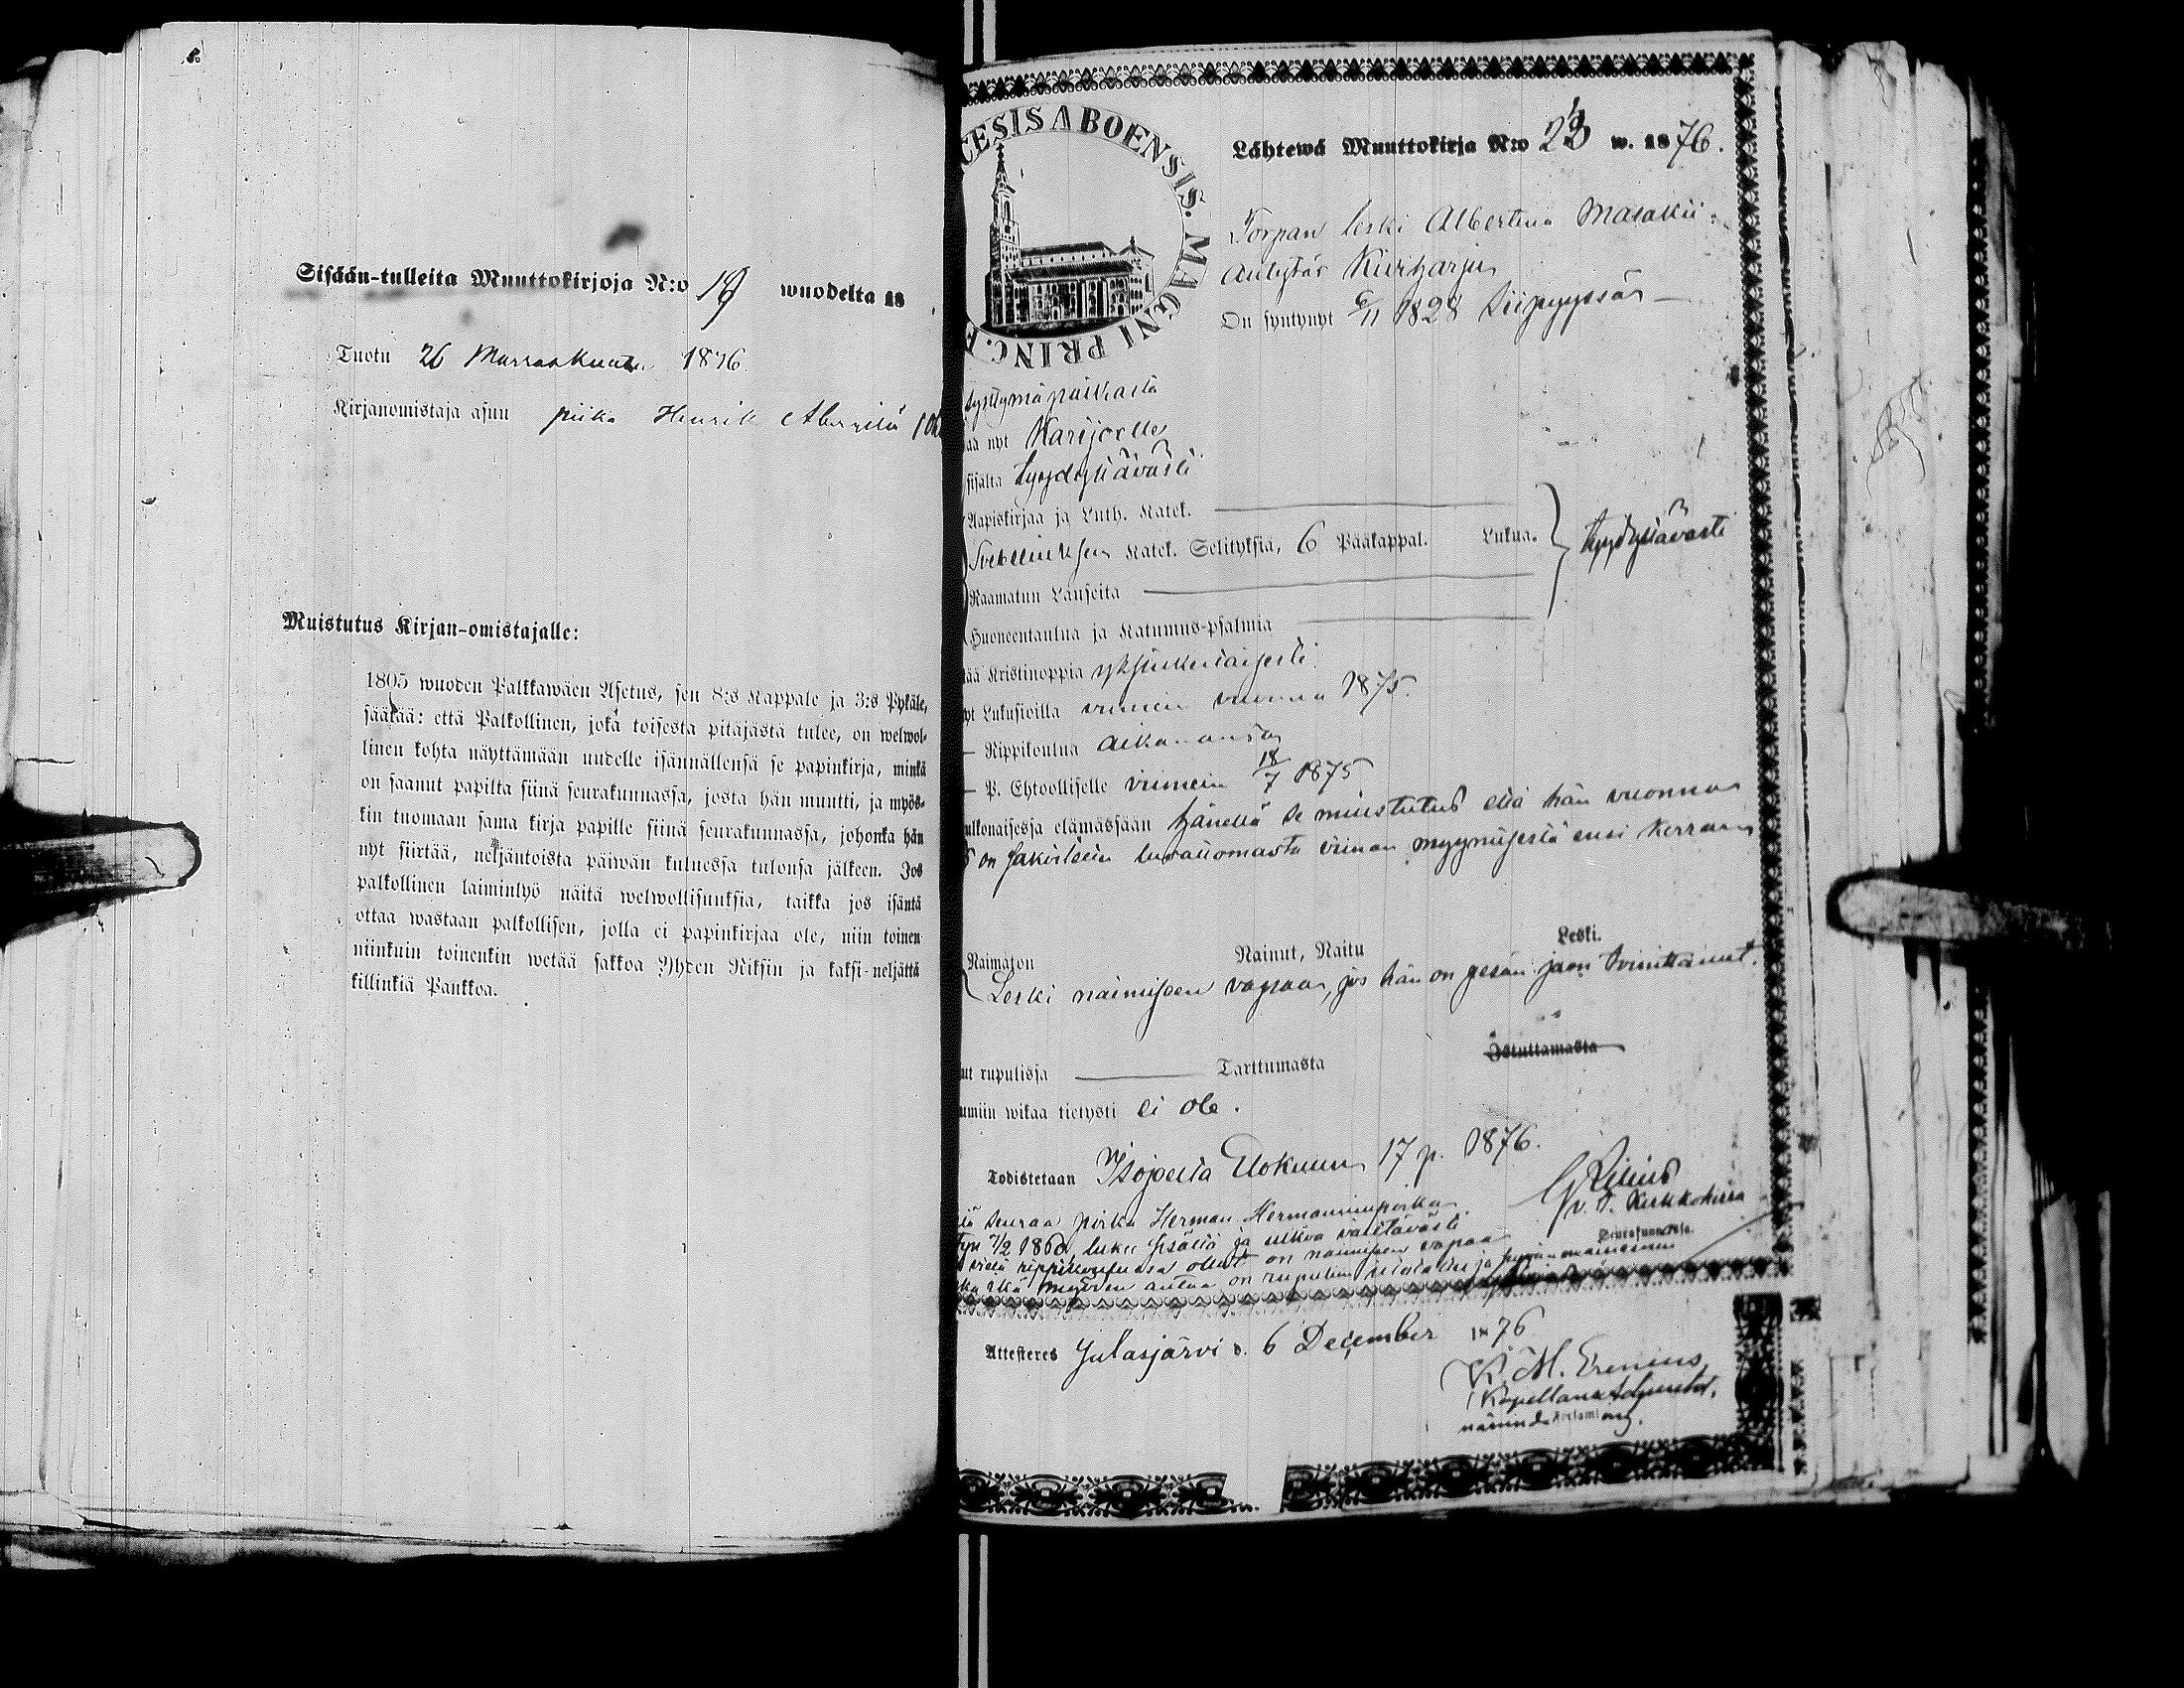 Sisään-tulleita Muuttokirjoja N:o 19 wuodelta 18
Tuotu 26 Marraskuuta 1876.
Kirjanomistaja asuu piika Henrik
Muistutus Kirjan-omistajalle:
1805 wuoden Palkkawäen Asetus, sen 8:s Kappale ja 3:s Pykäle,
säätää: että Palkollinen, joka toisesta pitäjästä tulee, on welwol-
linen kohta näyttämään uudelle isännällensä se papinkirja, minkä
on saanut papilta siinä seurakunnassa, josta hän muutti, ja myös-
kin tuomaan sama kirja papille siinä seurakunnassa, johonka hän
nyt siirtää, neljäntoista päiwän kuluessa tulonsa jälkeen. Jos
palkollinen laiminlyö näitä welwollisuuksia, taikka jos isäntä
ottaa wastaan palkollisen, jolla ei papinkirjaa ole, niin toinen
niinkuin toinenkin wetää sakkoa Yhden Riksin ja kaksi-neljättä
killinkiä Pankkoa.
CESIS ABOENSIS. MAGNI PRINC. F
Lähtewä Muuttokirja N:o 23 w. 1876.
Torpan leski Albertina Masakii=
Antytär Kiviharju
On syntynyt 6/11 1828 Siipyyssä
syntymäpaikasta
aa nyt Karijoelle
sisältä tyydyttävästi
Aapiskirjaa ja Luth. Katek.
Svebeliuksen Katek. Selityksiä, 6 Pääkappal. Lukua. tyydyttävästi
Raamatun Lauseita
Huoneentaulua ja Katumus-psalmia
tää Kristinoppia yksinkertaisesti
yt Lukusioilla viimein vuonna 1875.
Rippikoulua aikanansa
P. Ehtoolliselle viimein 18/7 1875
ulkonaisessa elämässään hänellä se muistutus että hän vuonna
on sakoitettu luvattomasta viinan myymisestä ensi kerran
Naimaton Nainut, Naitu Leski.
Leski naimiseen vapaa, jos hän on pesän jaon toimittanut.
ut rupulissa Tarttumasta Istuttamasta
umiin wikaa tietysti ei ole.
Todistetaan Isojoella Elokuun 17 p. 1876.
v. t. Kirkkoherra
Seurakunnassa.
tä seuraa poika Herman Hermanninpoika
7/2 1860, lukee sisältä ja ulkoa välttävästi
vielä rippikoulussa ollut on naimiseen vapaa
Attesteres Jalasjärvi d. 6 December 1876
K. M. Erenius
Kapellans Adjunkt,